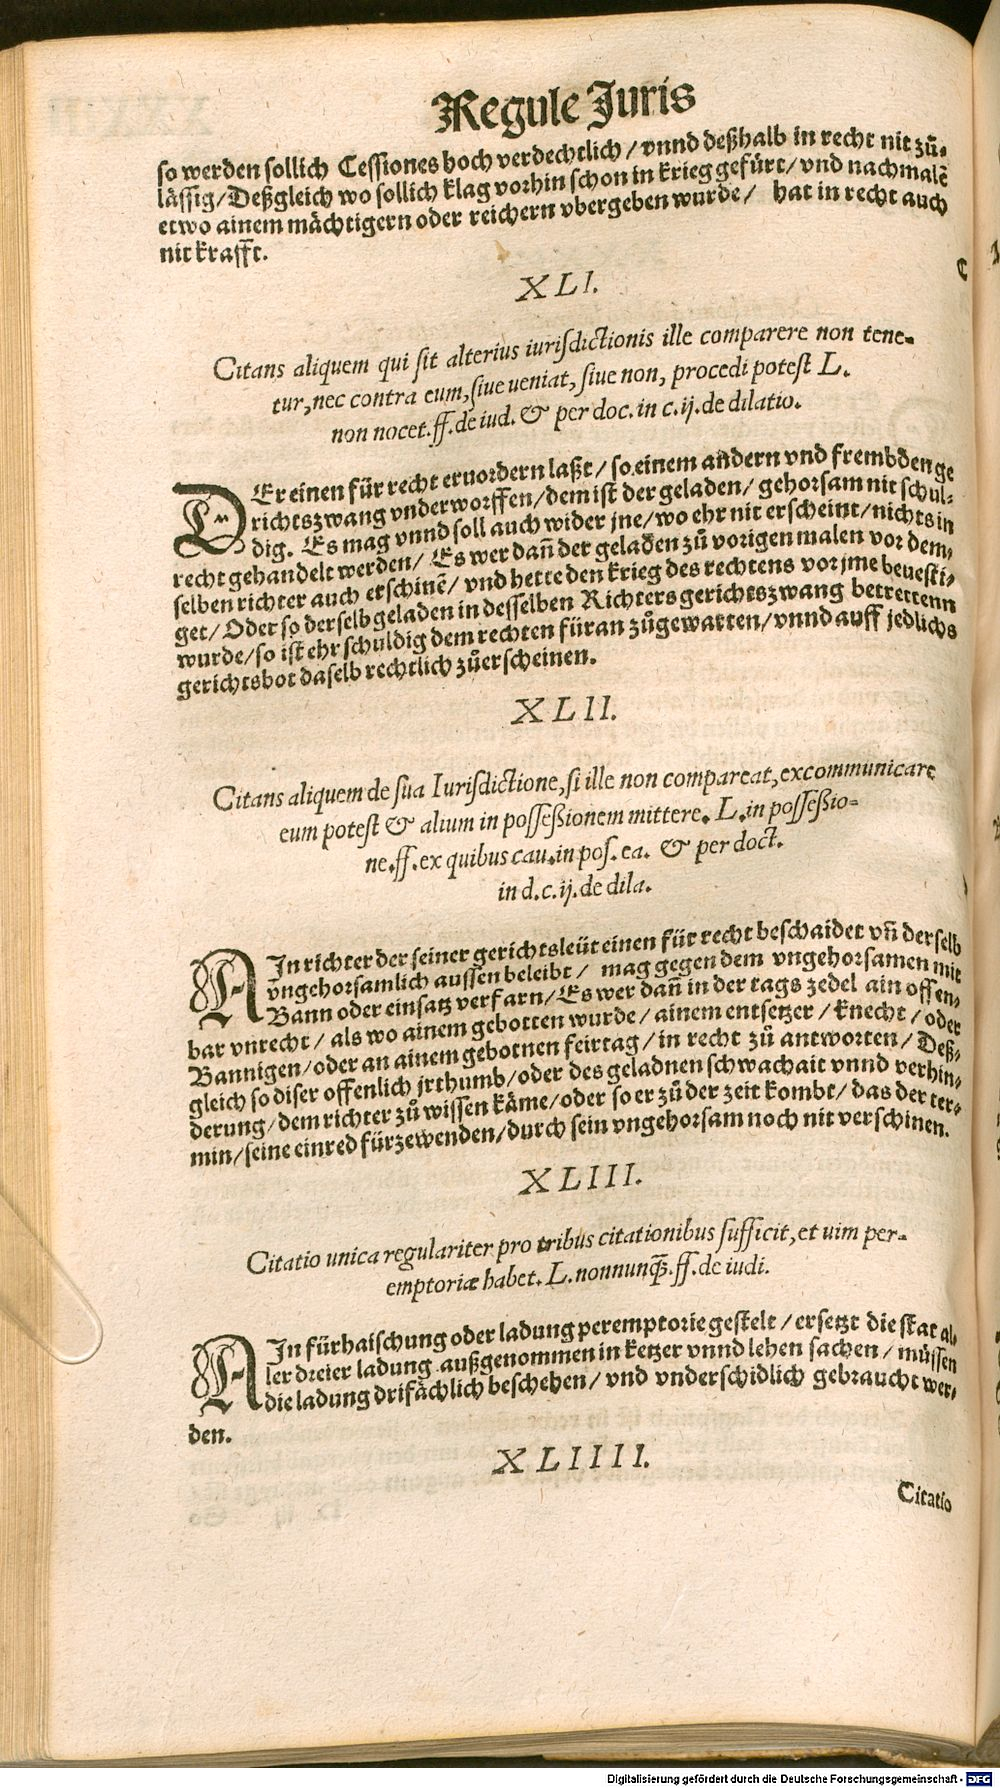 Regule Juris
so werden sollich Cessiones hoch verdechtlich / vnnd deßhalb in recht nit zů-
lässig / Deßgleich wo sollich klag vorhin schon in krieg gefürt / vnd nachmalē
etwo ainem mächtigern oder reichern vbergeben wurde / hat in recht auch
nit krafft.
XLI.
Citans aliquem qui sit alterius iurisdictionis ille comparere non tene-
tur, nec contra eum, siue ueniat, siue non, procedi potest L.
non nocet. ff. de iud. & per doc. in c. ij. de dilatio.
DEr einen für recht eruordern laßt / so einem andern vnd frembden ge
richtszwang vnderworffen / dem ist der geladen / gehorsam nit schul-
dig. Es mag vnnd soll auch wider jne / wo ehr nit erscheint / nichts in
recht gehandelt werden / Es wer dañ der geladen zů vorigen malen vor dem-
selben richter auch erschinē / vnd hette den krieg des rechtens vor jme beuesti-
get / Oder so der selb geladen in desselben Richters gerichtszwang betrettenn
wurde / so ist ehr schuldig dem rechten füran zůgewarten / vnnd auff jedlichs
gerichtsbot daselb rechtlich zůerscheinen.
XLII.
Citans aliquem de sua Iurisdictione, si ille non compareat, excommunicare
eum potest & alium in possessionem mittere. L. in possessio-
ne. ff. ex quibus cau. in pos. ea. & per doct.
in d. c. ij. de dila.
AIn richter der seiner gerichtsleüt einen für recht beschaidet vñ der selb
vngehorsamlich aussen beleibt / mag gegen dem vngehorsamen mit
Bann oder einsatz verfarn / Es wer dañ in der tags zedel ain offen-
bar vnrecht / als wo ainem gebotten wurde / ainem entsetzer / knecht / oder
Bannigen / oder an ainem gebotnen feirtag / in recht zů antworten / Deß-
gleich so diser offenlich jrthumb / oder des geladnen schwachait vnnd verhin-
derung / dem richter zů wissen käme / oder so er zů der zeit kombt / das der ter-
min / seine einred fürzewenden / durch sein vngehorsam noch nit verschinen.
XLIII.
Citatio unica regulariter pro tribus citationibus sufficit, et uim per-
emptoriæ habet. L. nonnunq̃. ff. de iudi.
AIn fürhaischung oder ladung peremptorie gestelt / ersetzt die stat al-
ler dreier ladung außgenommen in ketzer vnnd lehen sachen / müssen
die ladung drifächlich beschehen / vnd vnderschidlich gebraucht wer-
den.
XLIIII.
Citatio
Digitalisierung gefördert durch die Deutsche Forschungsgemeinschaft - DFG